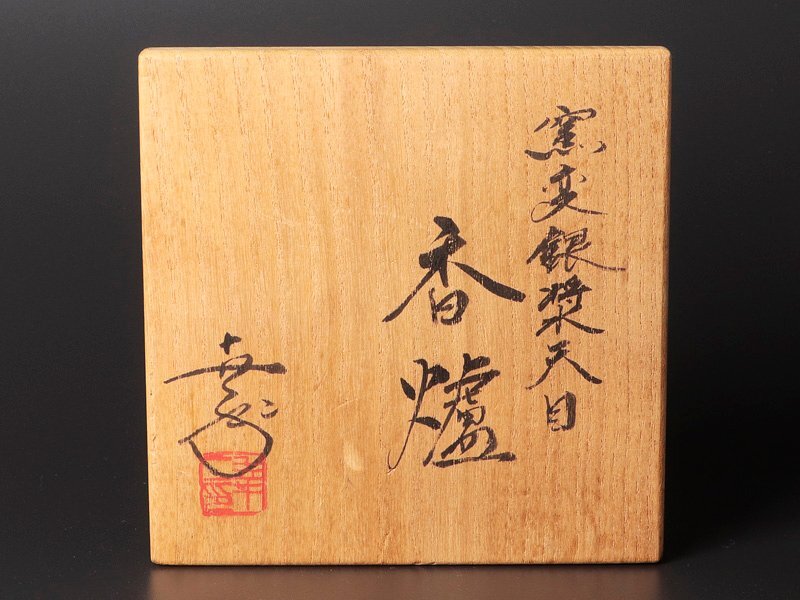 窯変銀漿天目
香爐